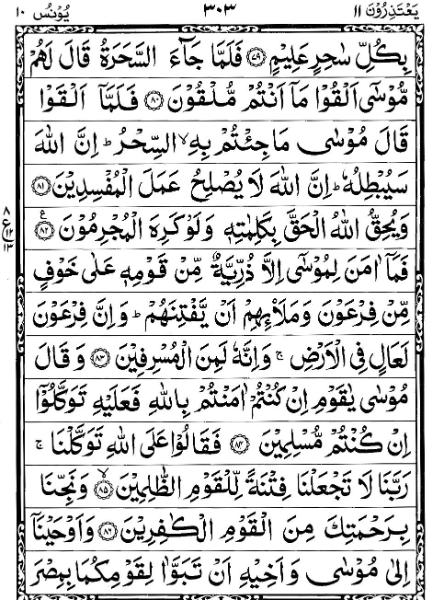 يَعْتَذِرُوْنَ ١١ ٣٠٣ يُوْنُس ١٠
بِكُلِّ سٰحِرٍ عَلِيْمٍ ﴿٧٩﴾ فَلَمَّا جَآءَ السَّحَرَةُ قَالَ لَهُمْ
مُّوْسٰٓى اَلْقُوْا مَآ اَنْتُمْ مُّلْقُوْنَ ﴿٨٠﴾ فَلَمَّآ اَلْقَوْا
قَالَ مُوْسٰى مَا جِئْتُمْ بِهِ ۙ السِّحْرُ ؕ اِنَّ اللّٰهَ
سَيُبْطِلُهٗ ؕ اِنَّ اللّٰهَ لَا يُصْلِحُ عَمَلَ الْمُفْسِدِيْنَ ﴿٨١﴾
وَيُحِقُّ اللّٰهُ الْحَقَّ بِكَلِمٰتِهٖ وَلَوْ كَرِهَ الْمُجْرِمُوْنَ ﴿٨٢﴾
فَمَآ اٰمَنَ لِمُوْسٰٓى اِلَّا ذُرِّيَّةٌ مِّنْ قَوْمِهٖ عَلٰى خَوْفٍ
مِّنْ فِرْعَوْنَ وَمَلَا۟ئِهِمْ اَنْ يَّفْتِنَهُمْ ؕ وَاِنَّ فِرْعَوْنَ
لَعَالٍ فِى الْاَرْضِ ۚ وَاِنَّهٗ لَمِنَ الْمُسْرِفِيْنَ ﴿٨٣﴾ وَقَالَ
مُوْسٰى يٰقَوْمِ اِنْ كُنْتُمْ اٰمَنْتُمْ بِاللّٰهِ فَعَلَيْهِ تَوَكَّلُوْٓا
اِنْ كُنْتُمْ مُّسْلِمِيْنَ ﴿٨٤﴾ فَقَالُوْا عَلَى اللّٰهِ تَوَكَّلْنَا ۚ
رَبَّنَا لَا تَجْعَلْنَا فِتْنَةً لِّلْقَوْمِ الظّٰلِمِيْنَ ﴿٨٥﴾ۙ وَنَجِّنَا
بِرَحْمَتِكَ مِنَ الْقَوْمِ الْكٰفِرِيْنَ ﴿٨٦﴾ وَاَوْحَيْنَآ
اِلٰى مُوْسٰى وَاَخِيْهِ اَنْ تَبَوَّاٰ لِقَوْمِكُمَا بِمِصْرَ
٨
ع
١٢
١٣